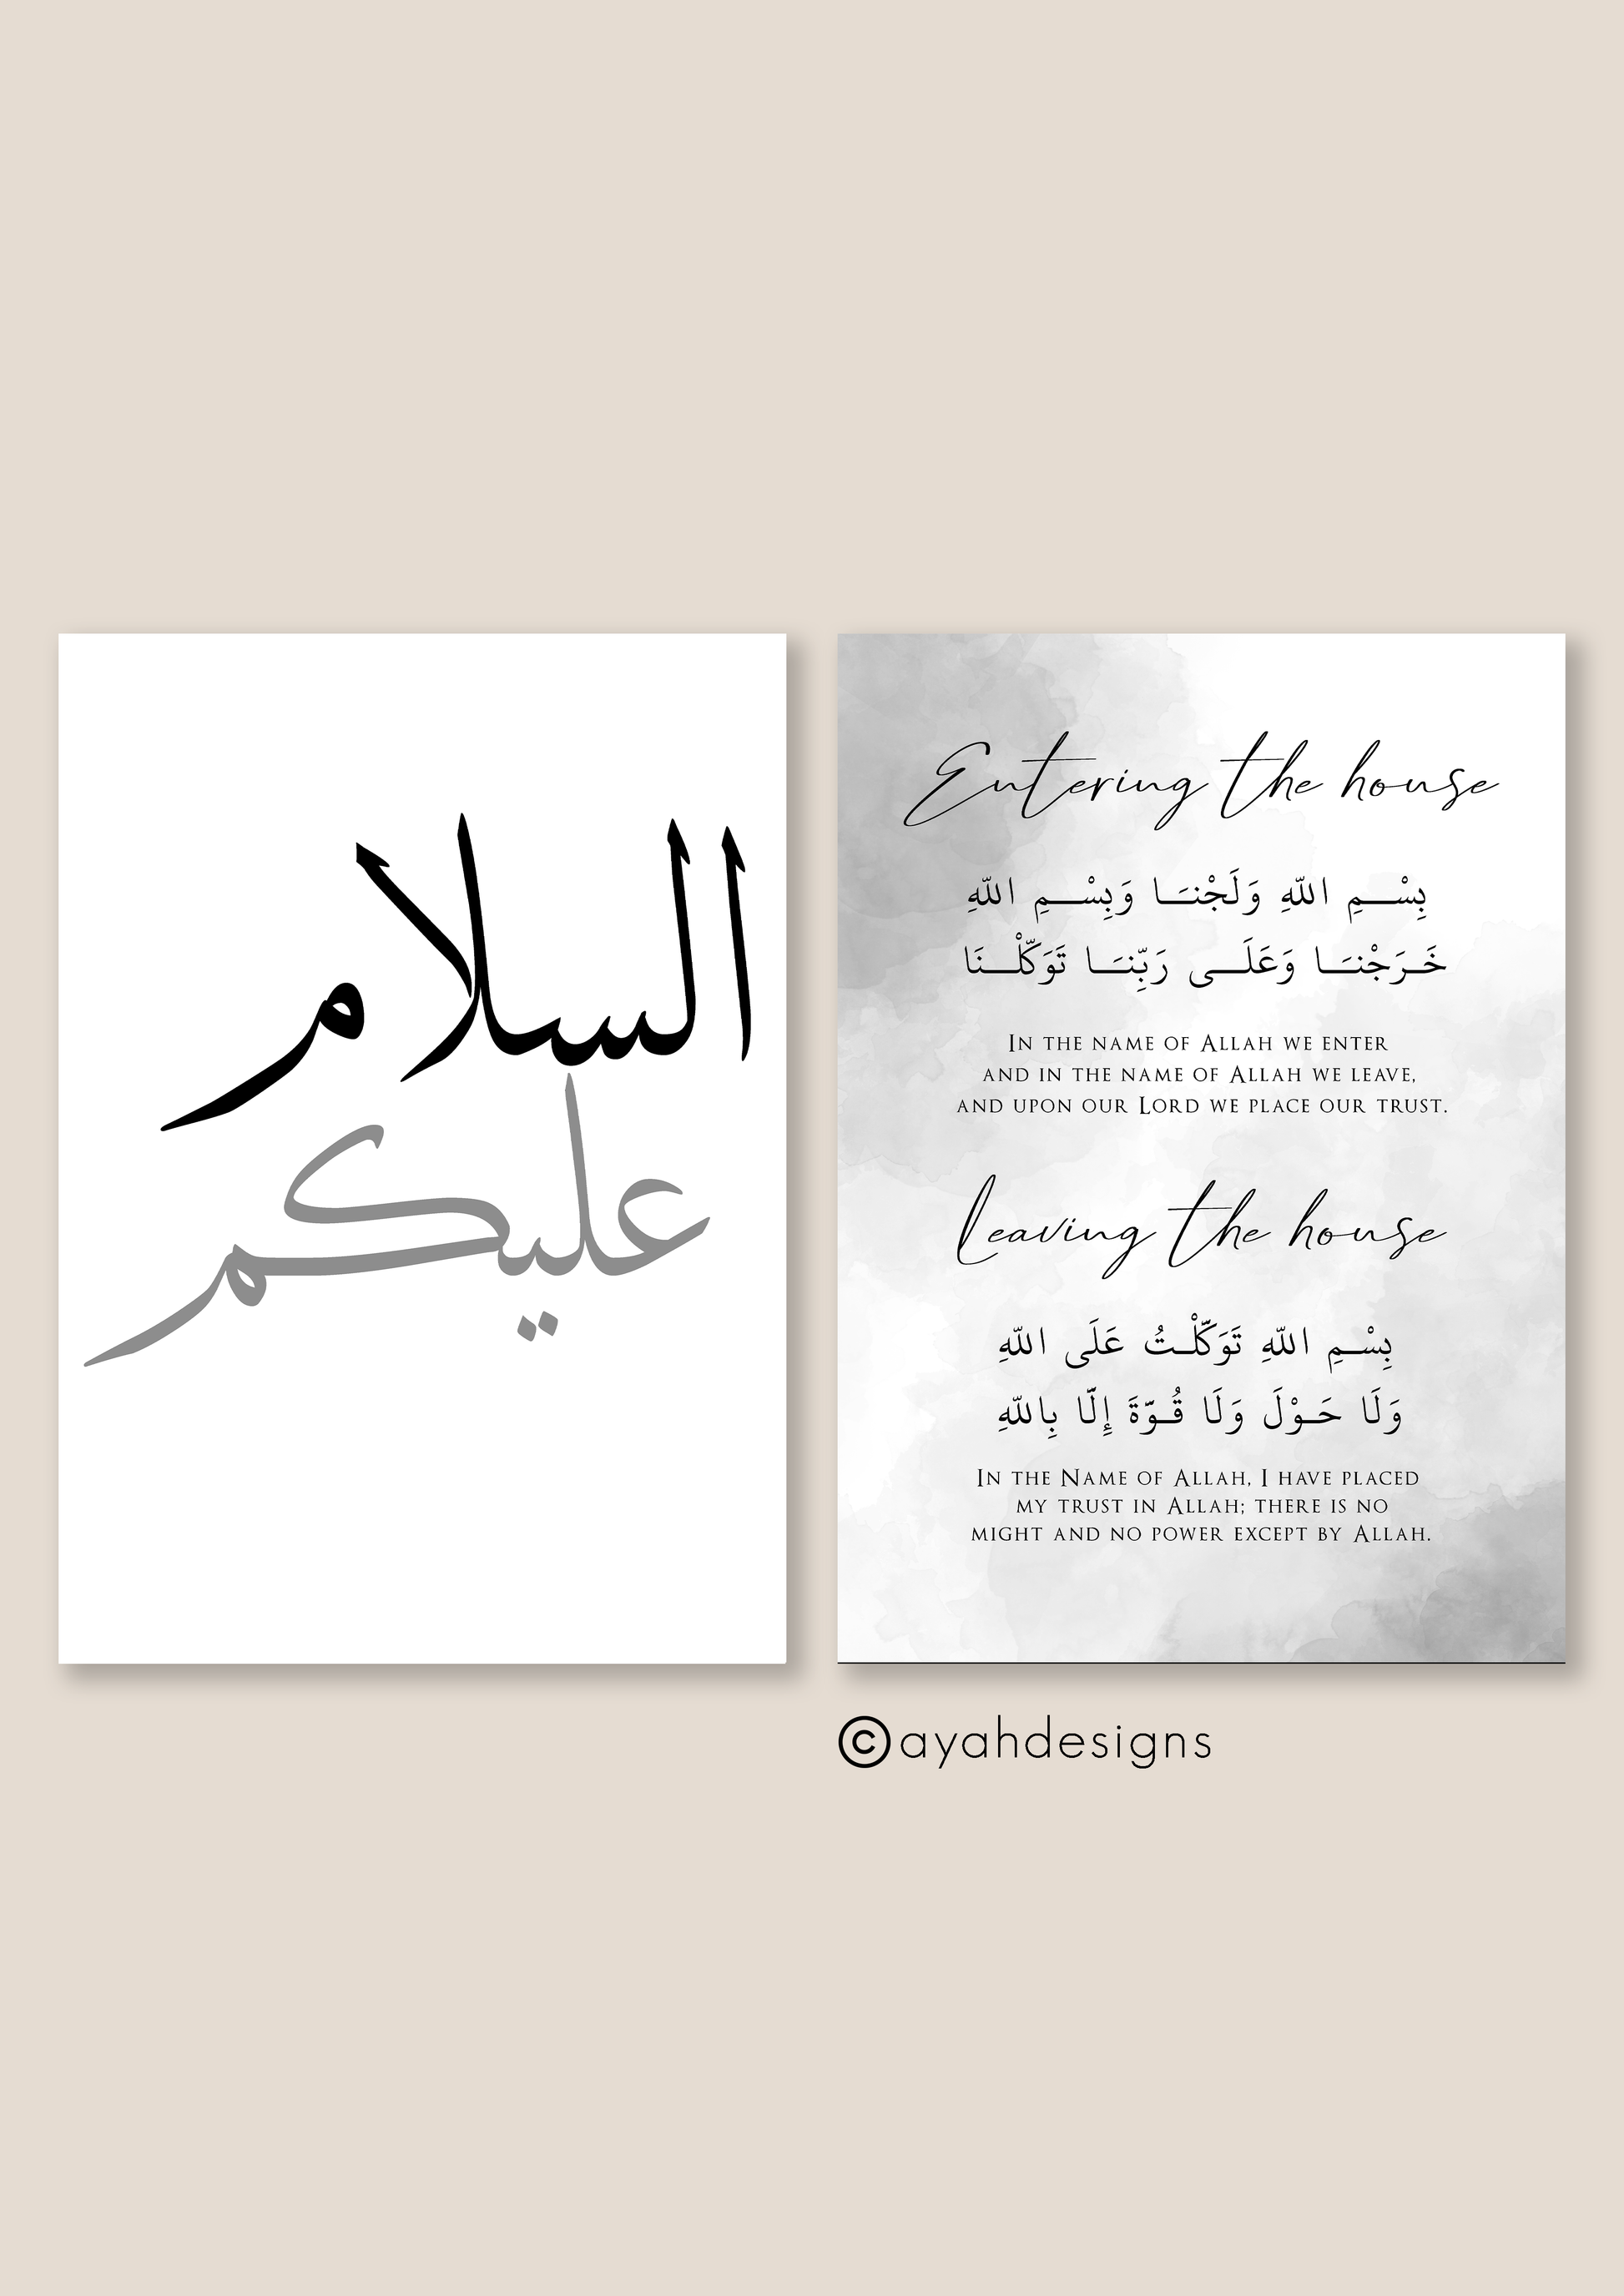 السلام
عليكم
Entering the house
بِسْـــمِ اللّهِ وَلَجْنَــا وَبِسْـــمِ اللّهِ
خَــرَجْنَــا وَعَلَـــى رَبِّنَــا تَوَكّلْـــنَا
In the name of Allah we enter
and in the name of Allah we leave,
and upon our Lord we place our trust.
Leaving the house
بِسْــمِ اللّهِ تَوَكّلْــتُ عَلَى اللّهِ
وَلَا حَــوْلَ وَلَا قُــوّةَ إِلّا بِاللّهِ
In the Name of Allah, I have placed
my trust in Allah; there is no
might and no power except by Allah.
©ayahdesigns